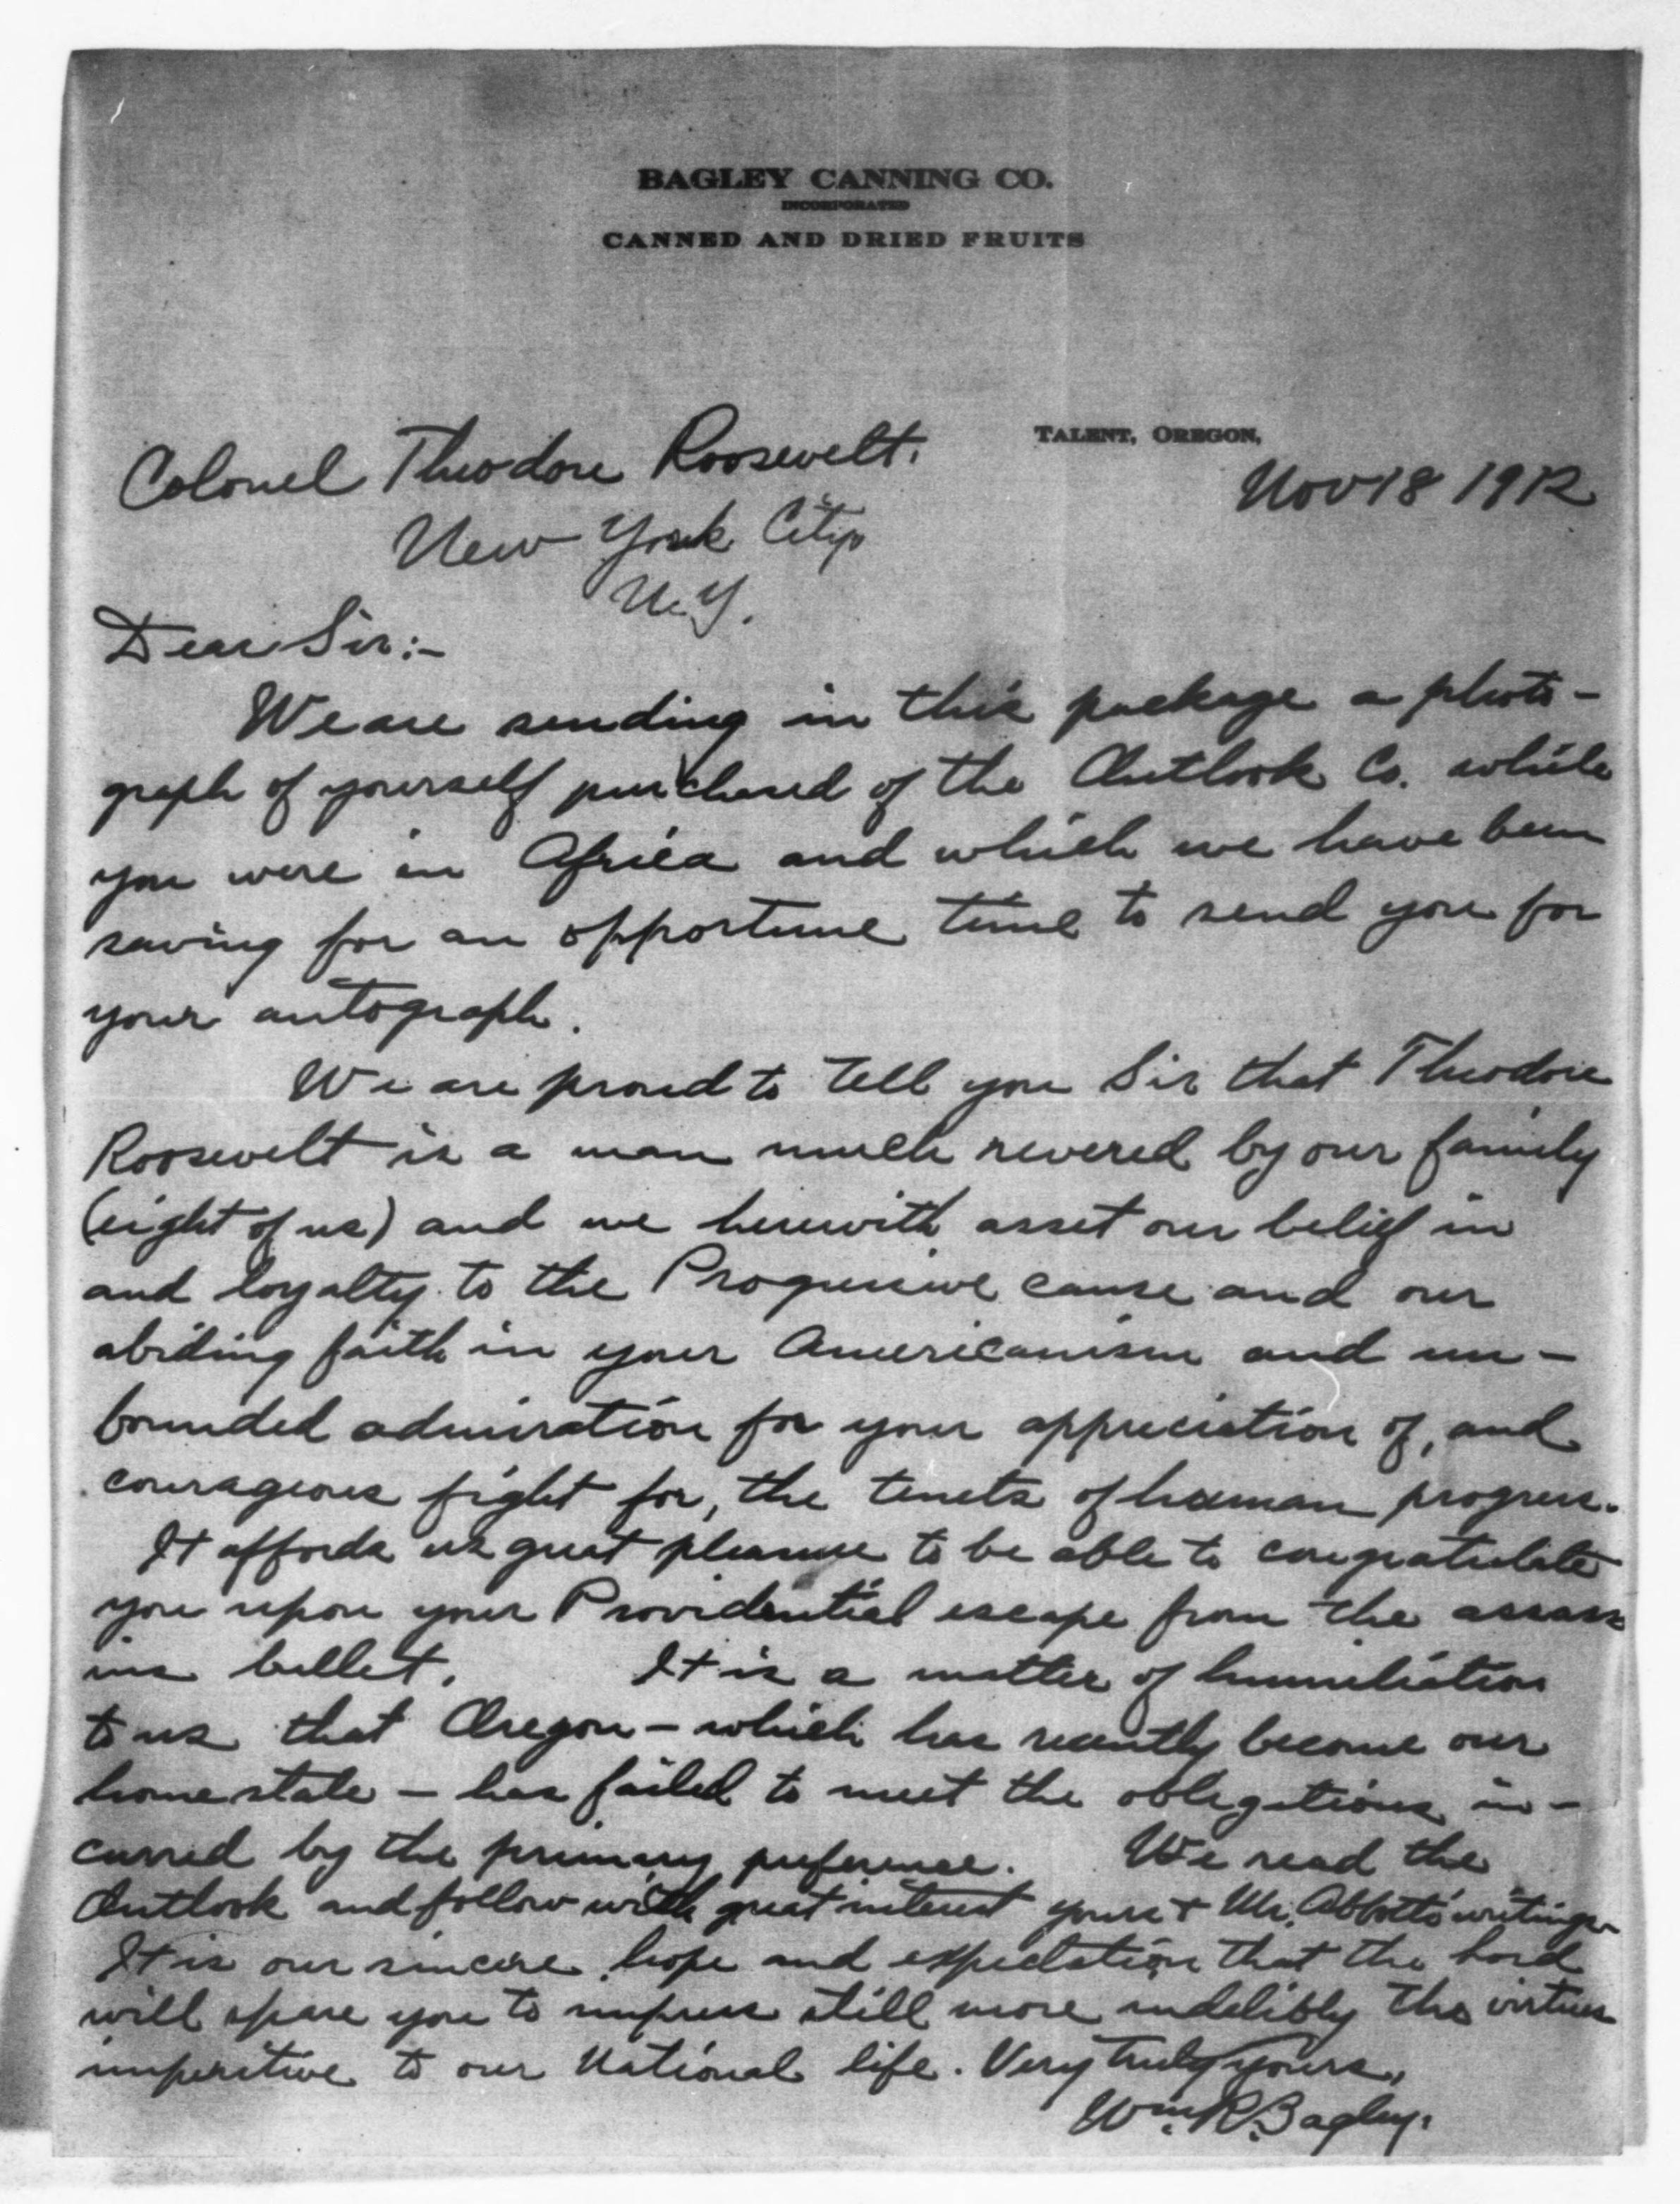 BAGLEY CANNING CO.
INCORPORATED
CANNED AND DRIED FRUITS
TALENT, OREGON,
Nov 18 1912
Colonel Theodore Roosevelt.
New York City
N.Y.
Dear Sir:-
We are sending in this package a photo-
graph of yourself purchased of the Outlook Co. while
you were in Africa and which we have been
saving for an opportune time to send you for
your autograph.
We are proud to tell you Sir that Theodore
Roosevelt is a man much revered by our family
(eight of us) and we herewith asset our belief in
and loyalty to the Progressive cause and our
abiding faith in your Americanism and un-
bounded admiration for your appreciation of, and
courageous fight for, the tenets of human progress.
It affords us great pleasure to be able to congratulate
you upon your Providential escape from the assass
ins bullet. It is a matter of humiliation
to us that Oregon - which has recently become our
home state - has failed to meet the obligations in-
curred by the primary preference. We read the
Outlook and follow with great interest yours + Mr. Abbotts' writings
It is our sincere hope and expectation that the Lord
will spare you to impress still more indelibly the virtues
imperitive to our National life. Very truly yours,
Wm. R. Bagley.